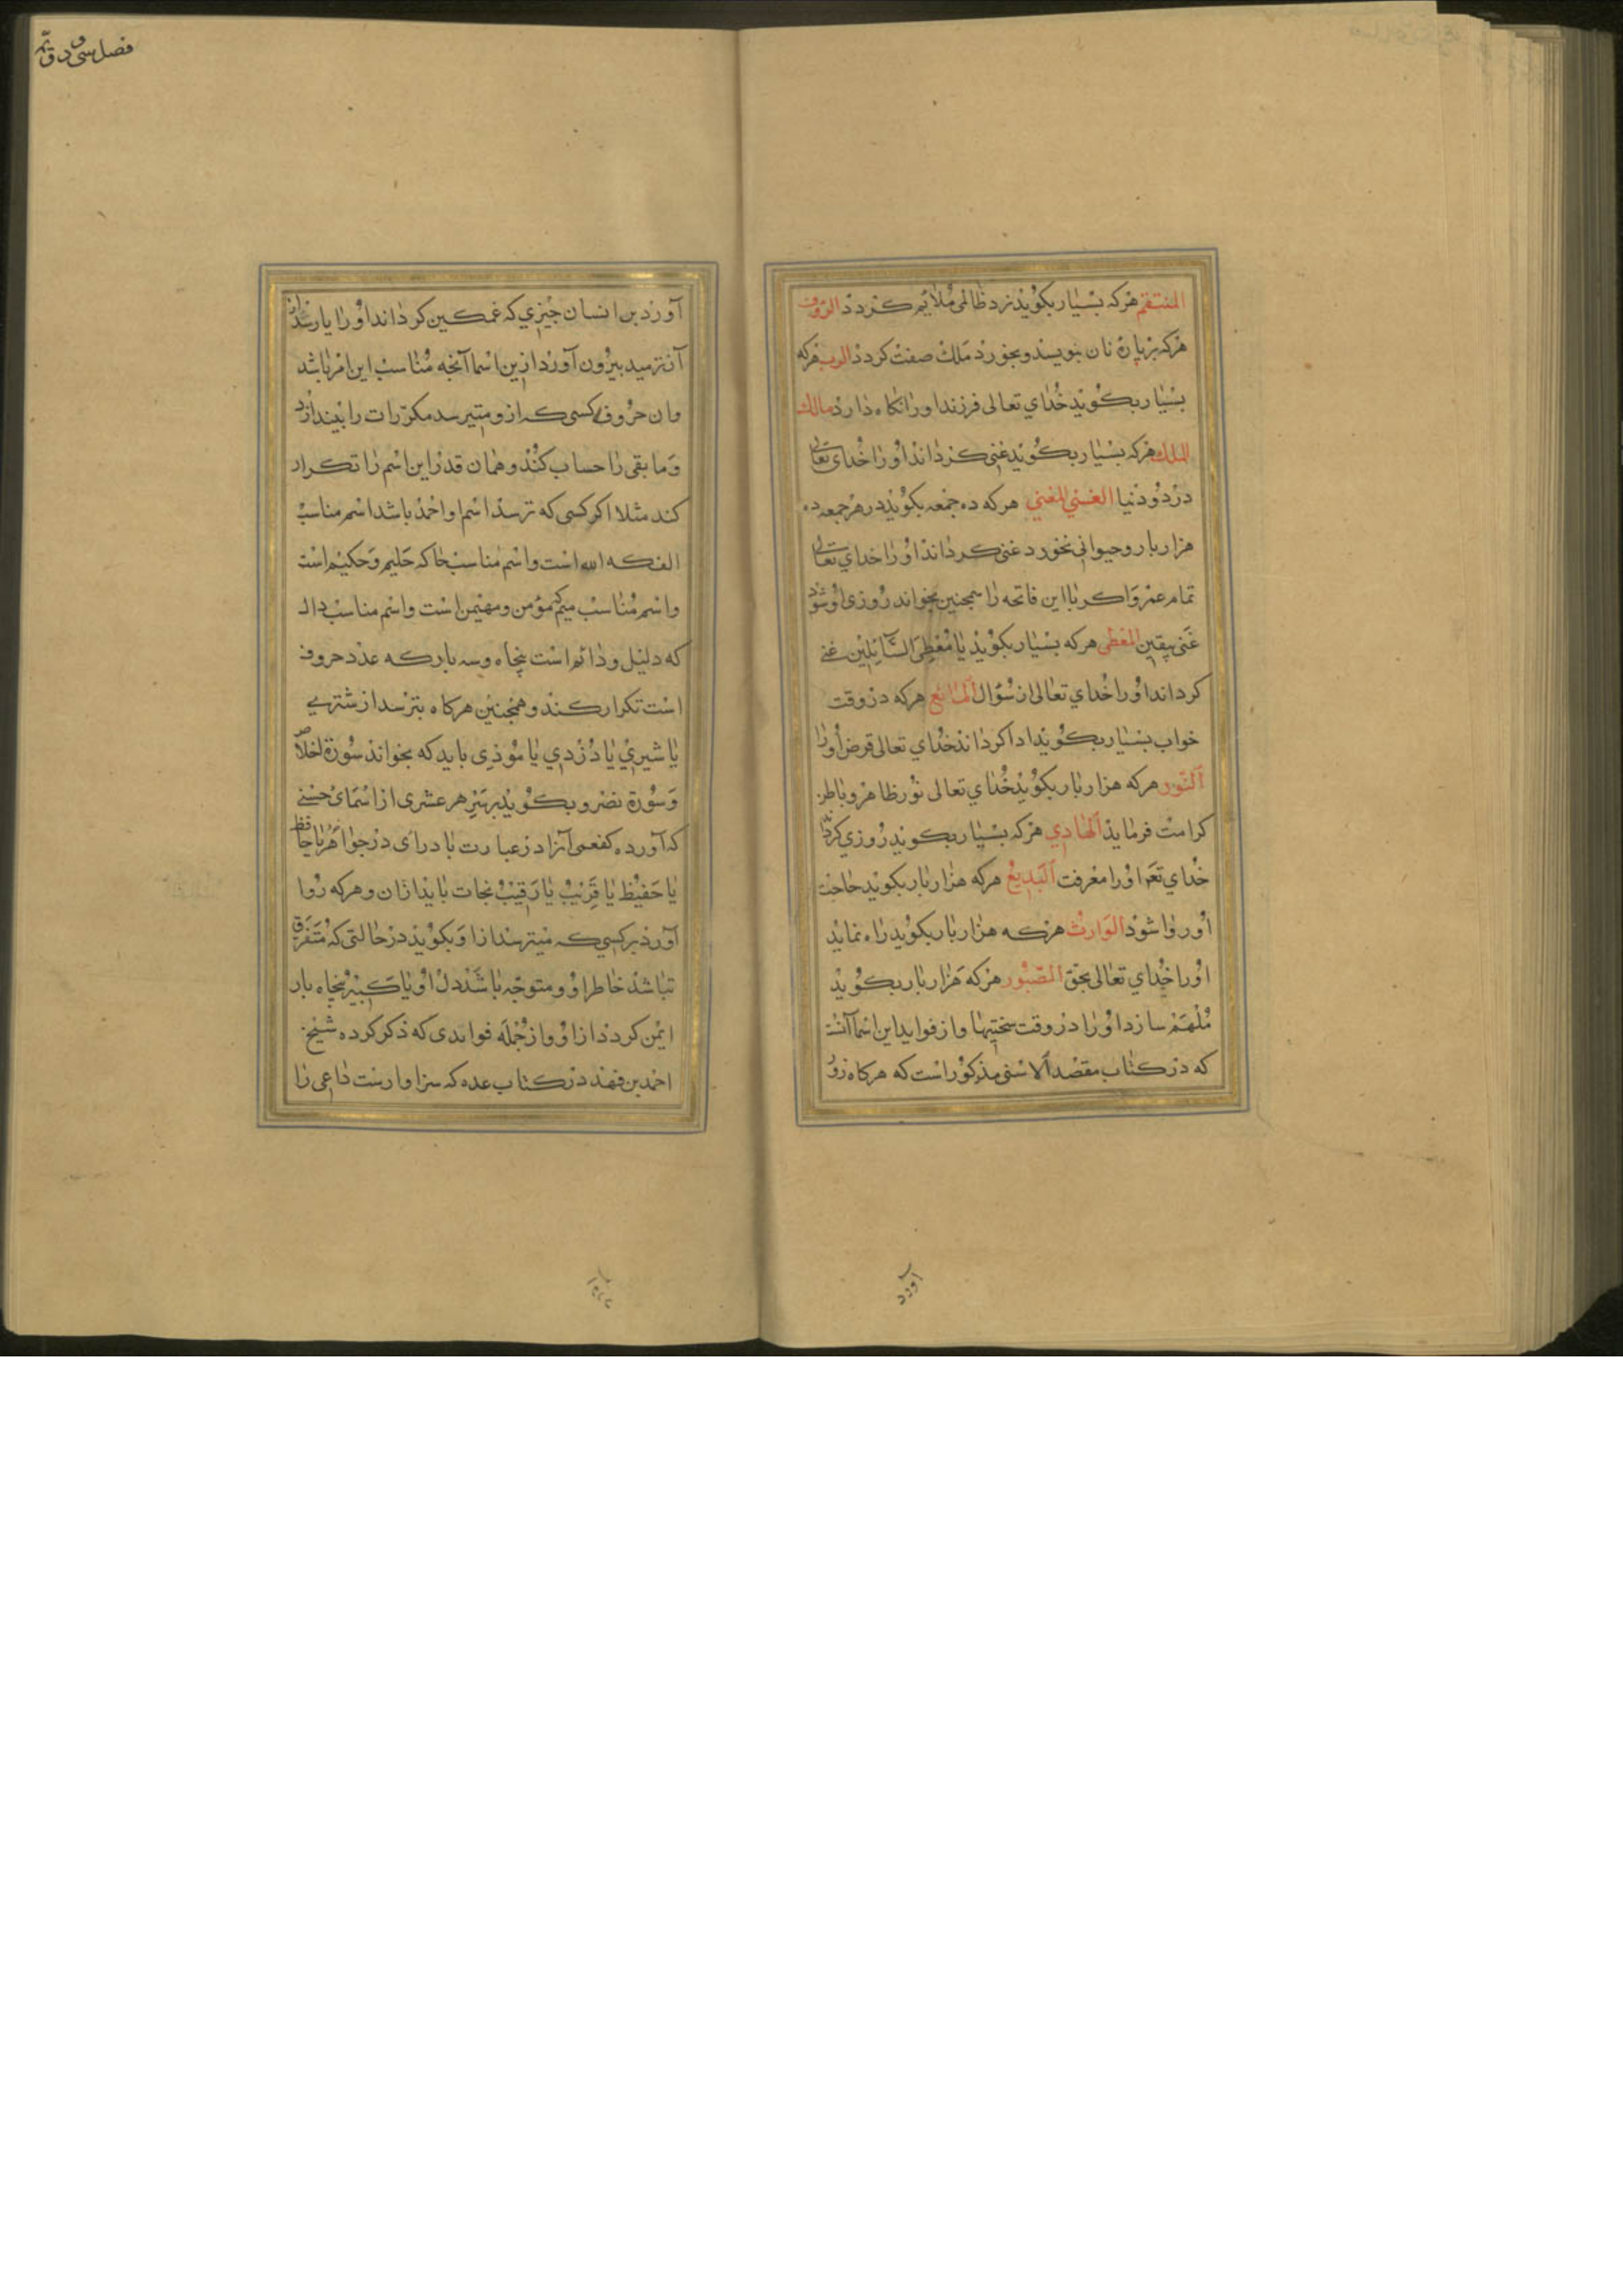 المنتقم هرکه بسیار بکوید نزد ظالمی ملایم کردد الرؤف
هرکه بر پاره نان بنویسد و بخورد ملک صفت کردد الرب هرکه
بسیار بکوید خدای تعالی فرزند اورا نکاه دارد مالک
الملک هرکه بسیار بکوید غنی کرداند اورا خدای تعالی
در دو دنیا الغنی المغنی هرکه ده جمعه بکوید در هر جمعه ده
هزار بار و حیوانی نخورد غنی کرداند اورا خدای تعالی
تمام عمر و اکر با این فاتحه را همچنین بخواند روزی او شود
غنی بیقین المعطی هرکه بسیار بکوید یا معطی السائلین غنی
کرداند اورا خدای تعالی از سؤال المانع هرکه در وقت
خواب بسیار بکوید ادا کرداند خدای تعالی قرض اورا
النور هرکه هزار بار بکوید خدای تعالی نور ظاهر و باطن
کرامت فرماید الهادی هرکه بسیار بکوید روزی کرداند
خدای تعه اورا معرفت البدیع هرکه هزار بار بکوید حاجت
او روا شود الوارث هرکه هزار بار بکوید راه نماید
اورا خدای تعالی بحق الصبور هرکه هزار بار بکوید
ملهم سازد اورا در وقت سختیها و از فواید این اسما آنست
که در کتاب مقصد الاسنی مذکور است که هرکاه رو
آورد
فصل سی و دویّم
آورد بر انسان چیزی که غمکین کرداند اورا یا رسد از
آن ترسید بیرون آورد ازین اسما آنچه مناسب این امر باشد
و از حروف کسی که ازو میترسد مکررات را بیندازد
و ما بقی را حساب کند و همان قدر این اسم را تکرار
کند مثلا اکر کسی که ترسد اسم او احمد باشد اسم مناسب
الف که الله است و اسم مناسب حا که حلیم و حکیم است
و اسم مناسب میم که مؤمن و مهیمن است و اسم مناسب دال
که دلیل و دائم است پنجاه و سه بار که عدد حروف
است تکرار کند و همچنین هرکاه بترسد از شتری
یا شیری یا دزدی یا موذی باید که بخواند سوره اخلاص
و سوره نصر و بکوید بهتر هر عشری از اسمای حسنی
که آورده کفعمی آنرا در عبارت یا درای در جواهر یا حافظ
یا حفیظ یا قریب یا رقیب نجات یابد از آن و هرکه روا
آورد بر کسی که میترسد ازا و بکوید در حالتی که متفرق
نباشد خاطر او و متوجه باشد دل او یا کبیر پنجاه بار
ایمن کردد از او و از جمله فوایدی که ذکر کرده شیخ
احمد بن فهد در کتاب عده که سزاوارست داعی را